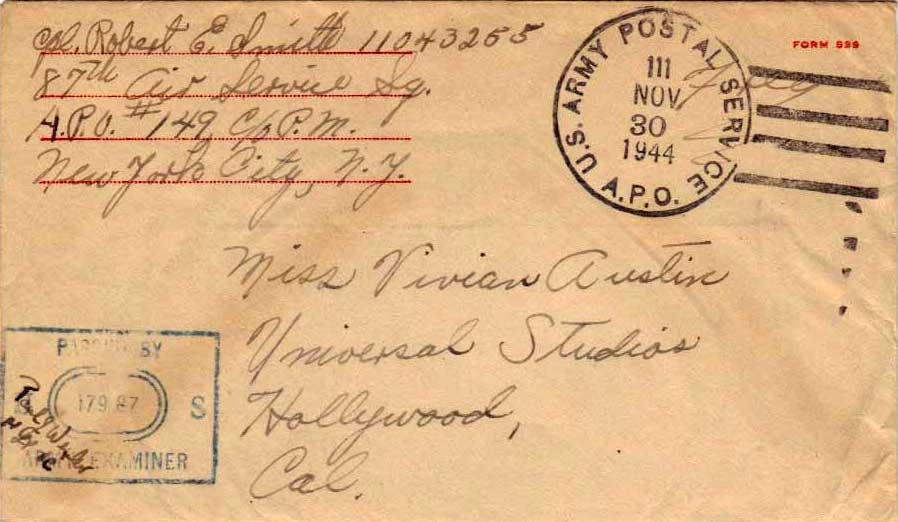 Cpl. Robert E. Smith 11043255
87th Air Service Sq.
A.P.O. #149, C/o P.M.
New York City, N.Y.
U.S. ARMY POSTAL SERVICE
A.P.O.
111
NOV
30
1944
Free
FORM 539
Miss Vivian Austin
Universal Studios
Hollywood,
Cal.
PASSED BY
17987
S
ARMY EXAMINER